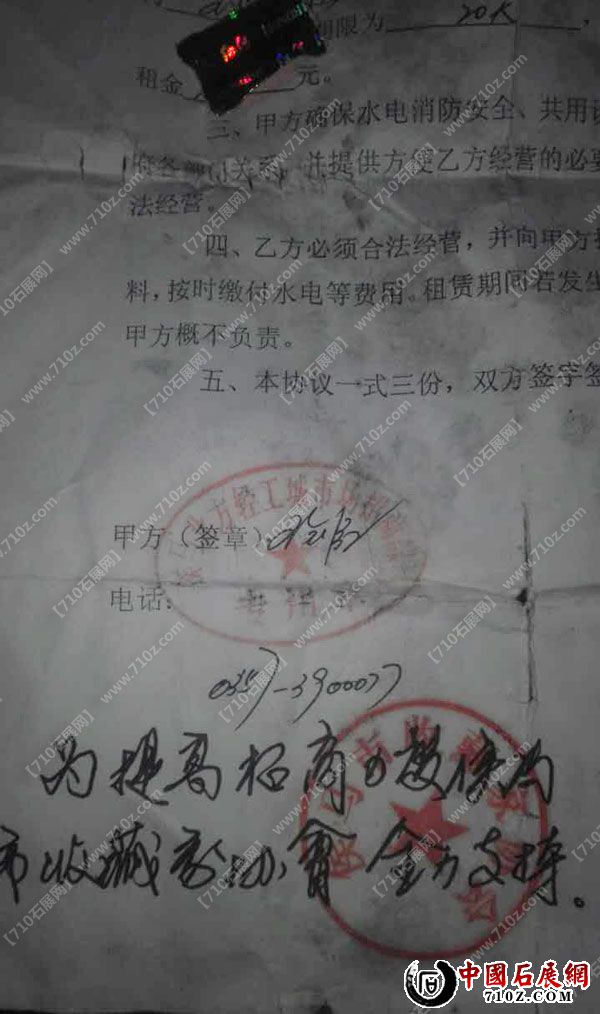 期限为 20K ，
租金 元。
三、甲方确保水电消防安全、共用设
府各部门关系，并提供方便乙方经营的必要
法经营。
四、乙方必须合法经营，并向甲方提
料，按时缴付水电等费用。租赁期间若发生
甲方概不负责。
五、本协议一式三份，双方签字签
甲方（签章）
方轻工城市场
电话：
0357-3900077
为提高招商力度
市收藏家协会 全力支持。
【710石展网】www.710z.com
中國石展網
710Z.COM